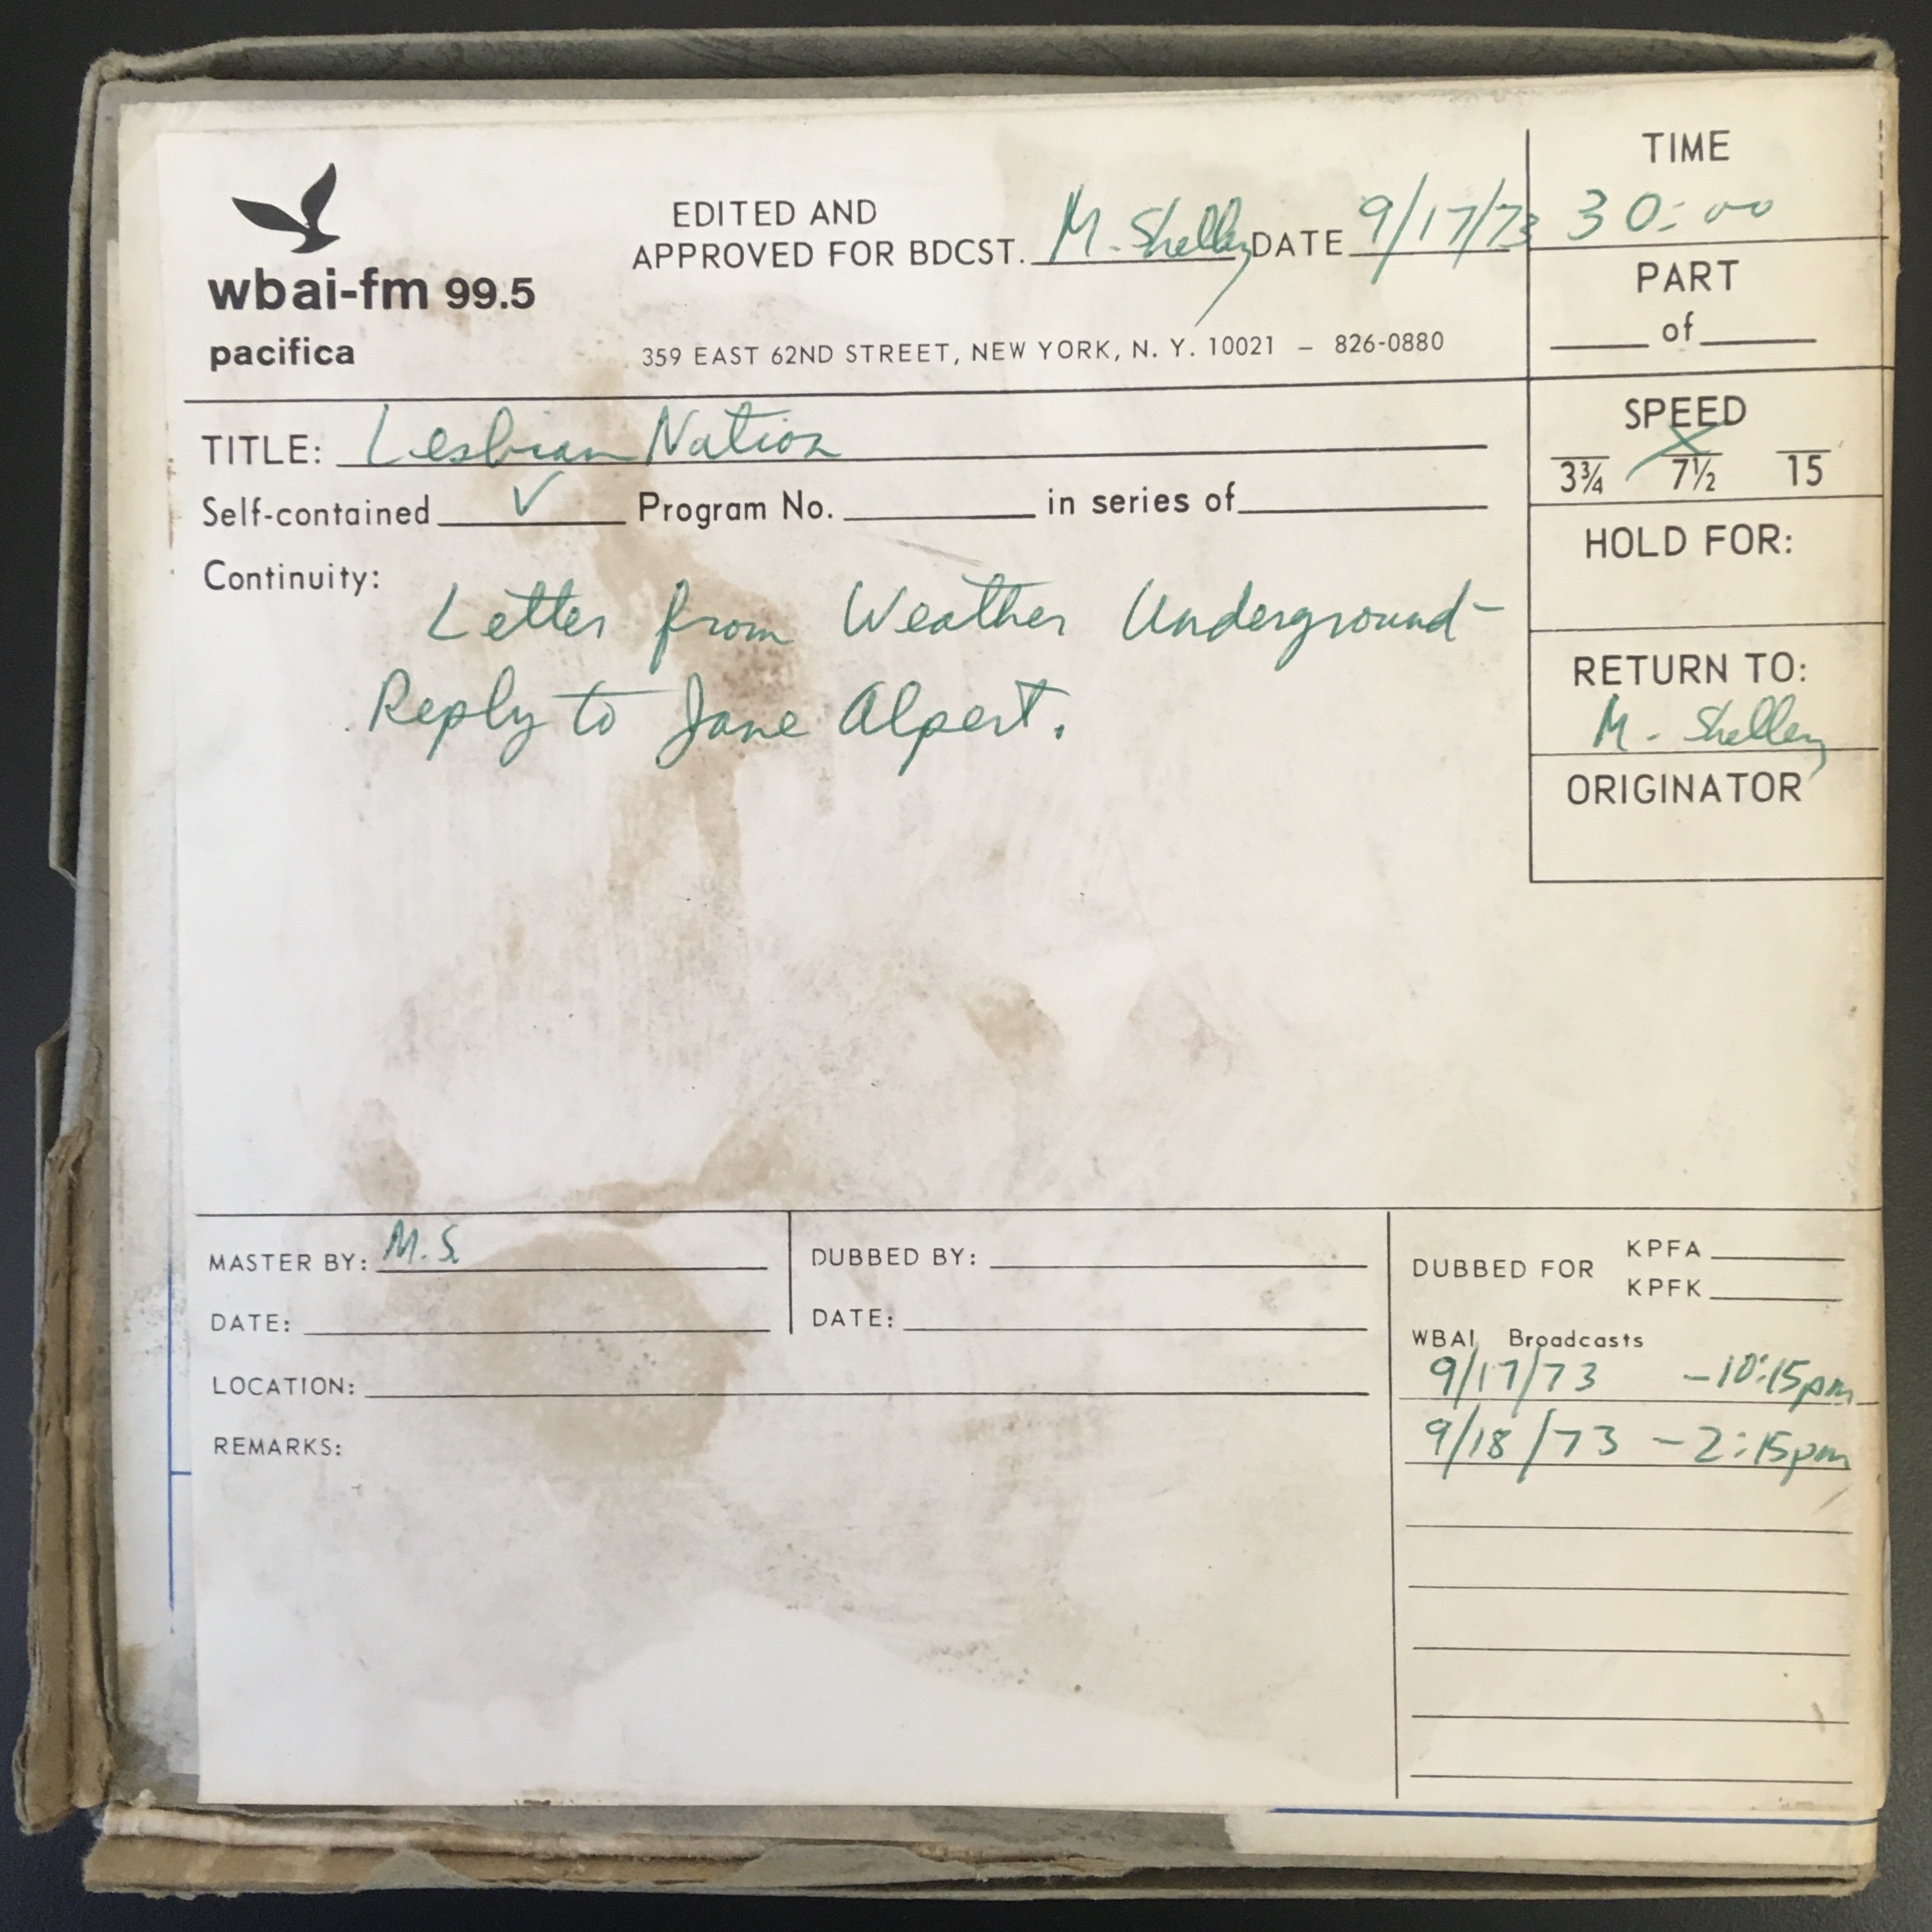 wbai-fm 99.5
pacifica
EDITED AND
APPROVED FOR BDCST. M. Shelley DATE 9/17/73
359 EAST 62ND STREET, NEW YORK, N. Y. 10021 — 826-0880
TIME
30:00
PART
of
SPEED
X
3¾ 7½ 15
HOLD FOR:
RETURN TO:
M. Shelley
ORIGINATOR
TITLE: Lesbian Nation
Self-contained ✓ Program No. in series of
Continuity:
Letter from Weather Underground-
Reply to Jane Alpert.
MASTER BY: M.S.
DATE:
DUBBED BY:
DATE:
LOCATION:
REMARKS:
DUBBED FOR KPFA
KPFK
WBAI Broadcasts
9/17/73 -10:15pm
9/18/73 -2:15pm